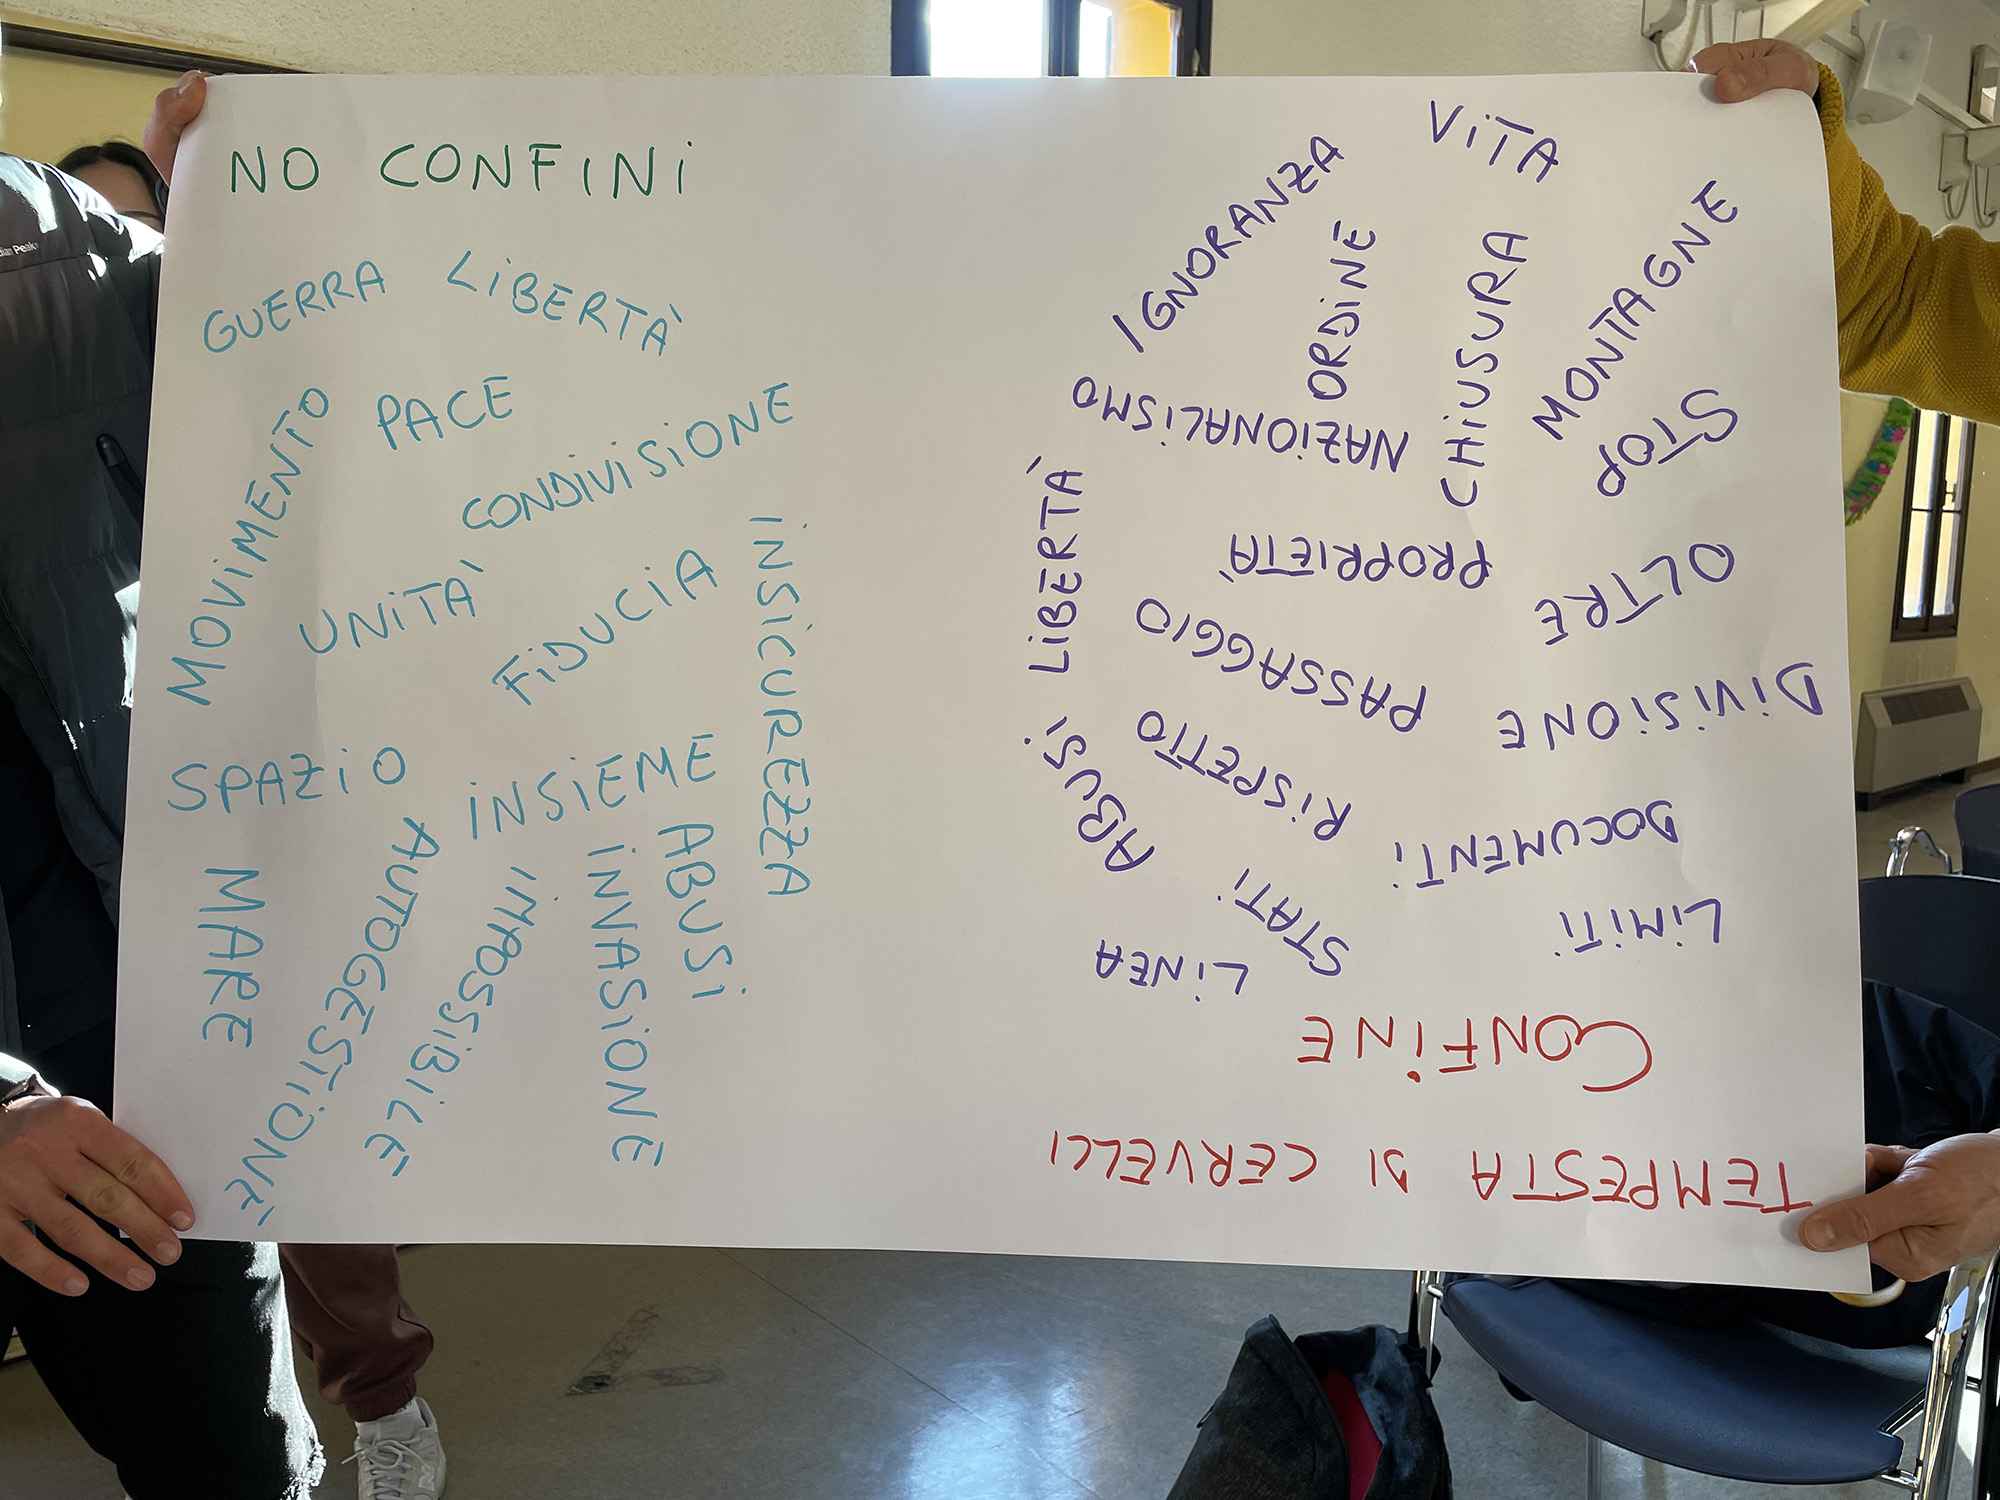 NO CONFINI
GUERRA
LIBERTÀ
MOVIMENTO
PACE
CONDIVISIONE
UNITÀ
FIDUCIA
INSICUREZZA
SPAZIO
INSIEME
MARE
AUTOGESTIONE
IMPOSSIBILE
INVASIONE
ABUSI
TEMPESTA DI CERVELLI
CONFINE
LIMITI
LINEA
STATI
DOCUMENTI
RISPETTO
ABUSI
DIVISIONE
PASSAGGIO
LIBERTÀ
OLTRE
PROPRIETÀ
STOP
NAZIONALISMO
MONTAGNE
CHIUSURA
ORDINE
IGNORANZA
VITA